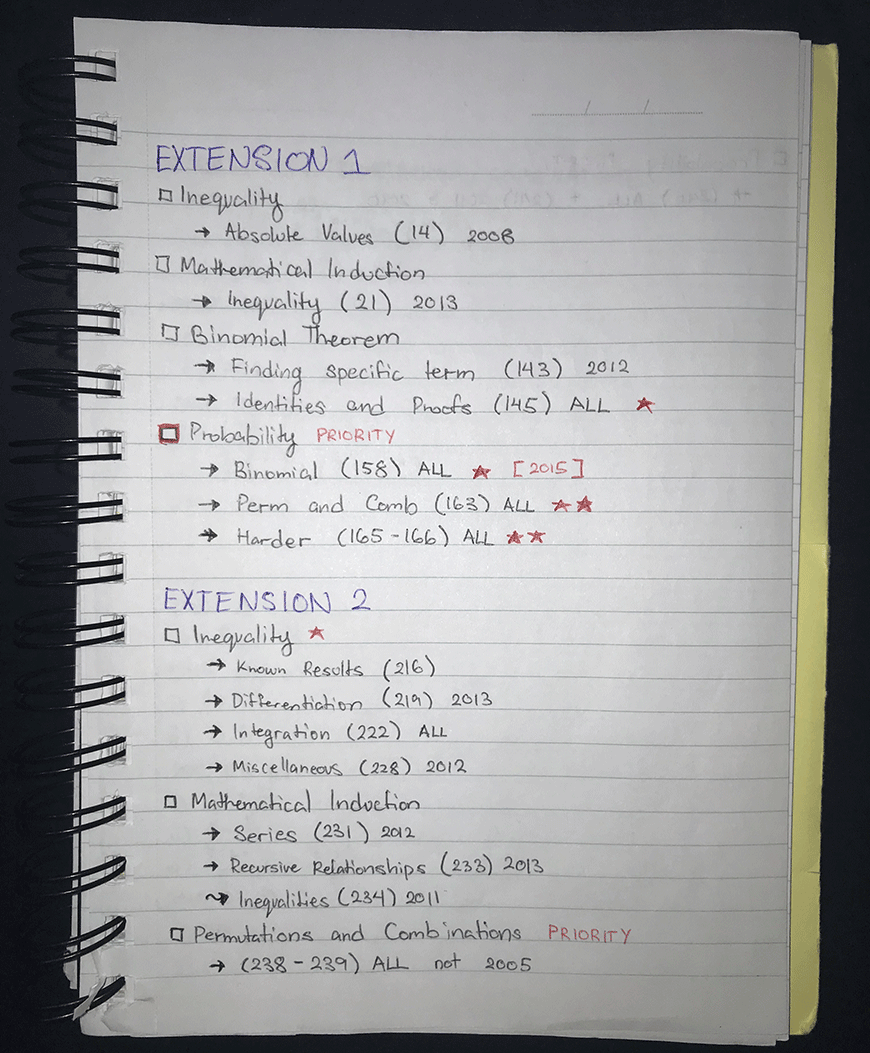 EXTENSION 1
Inequality
→ Absolute Values (14) 2008
Mathematical Induction
→ Inequality (21) 2013
Binomial Theorem
→ Finding specific term (143) 2012
→ Identities and Proofs (145) ALL ★
Probability PRIORITY
→ Binomial (158) ALL ★ [2015]
→ Perm and Comb (163) ALL ★★
→ Harder (165-166) ALL ★★
EXTENSION 2
Inequality ★
→ Known Results (216)
→ Differentiation (219) 2013
→ Integration (222) ALL
→ Miscellaneous (228) 2012
Mathematical Induction
→ Series (231) 2012
→ Recursive Relationships (233) 2013
→ Inequalities (234) 2011
Permutations and Combinations PRIORITY
→ (238-239) ALL not 2005